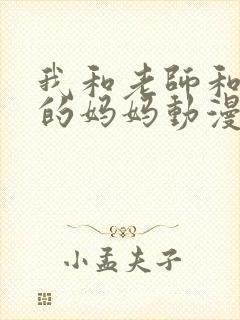 我和老師和
的妈妈動漫
小孟夫子